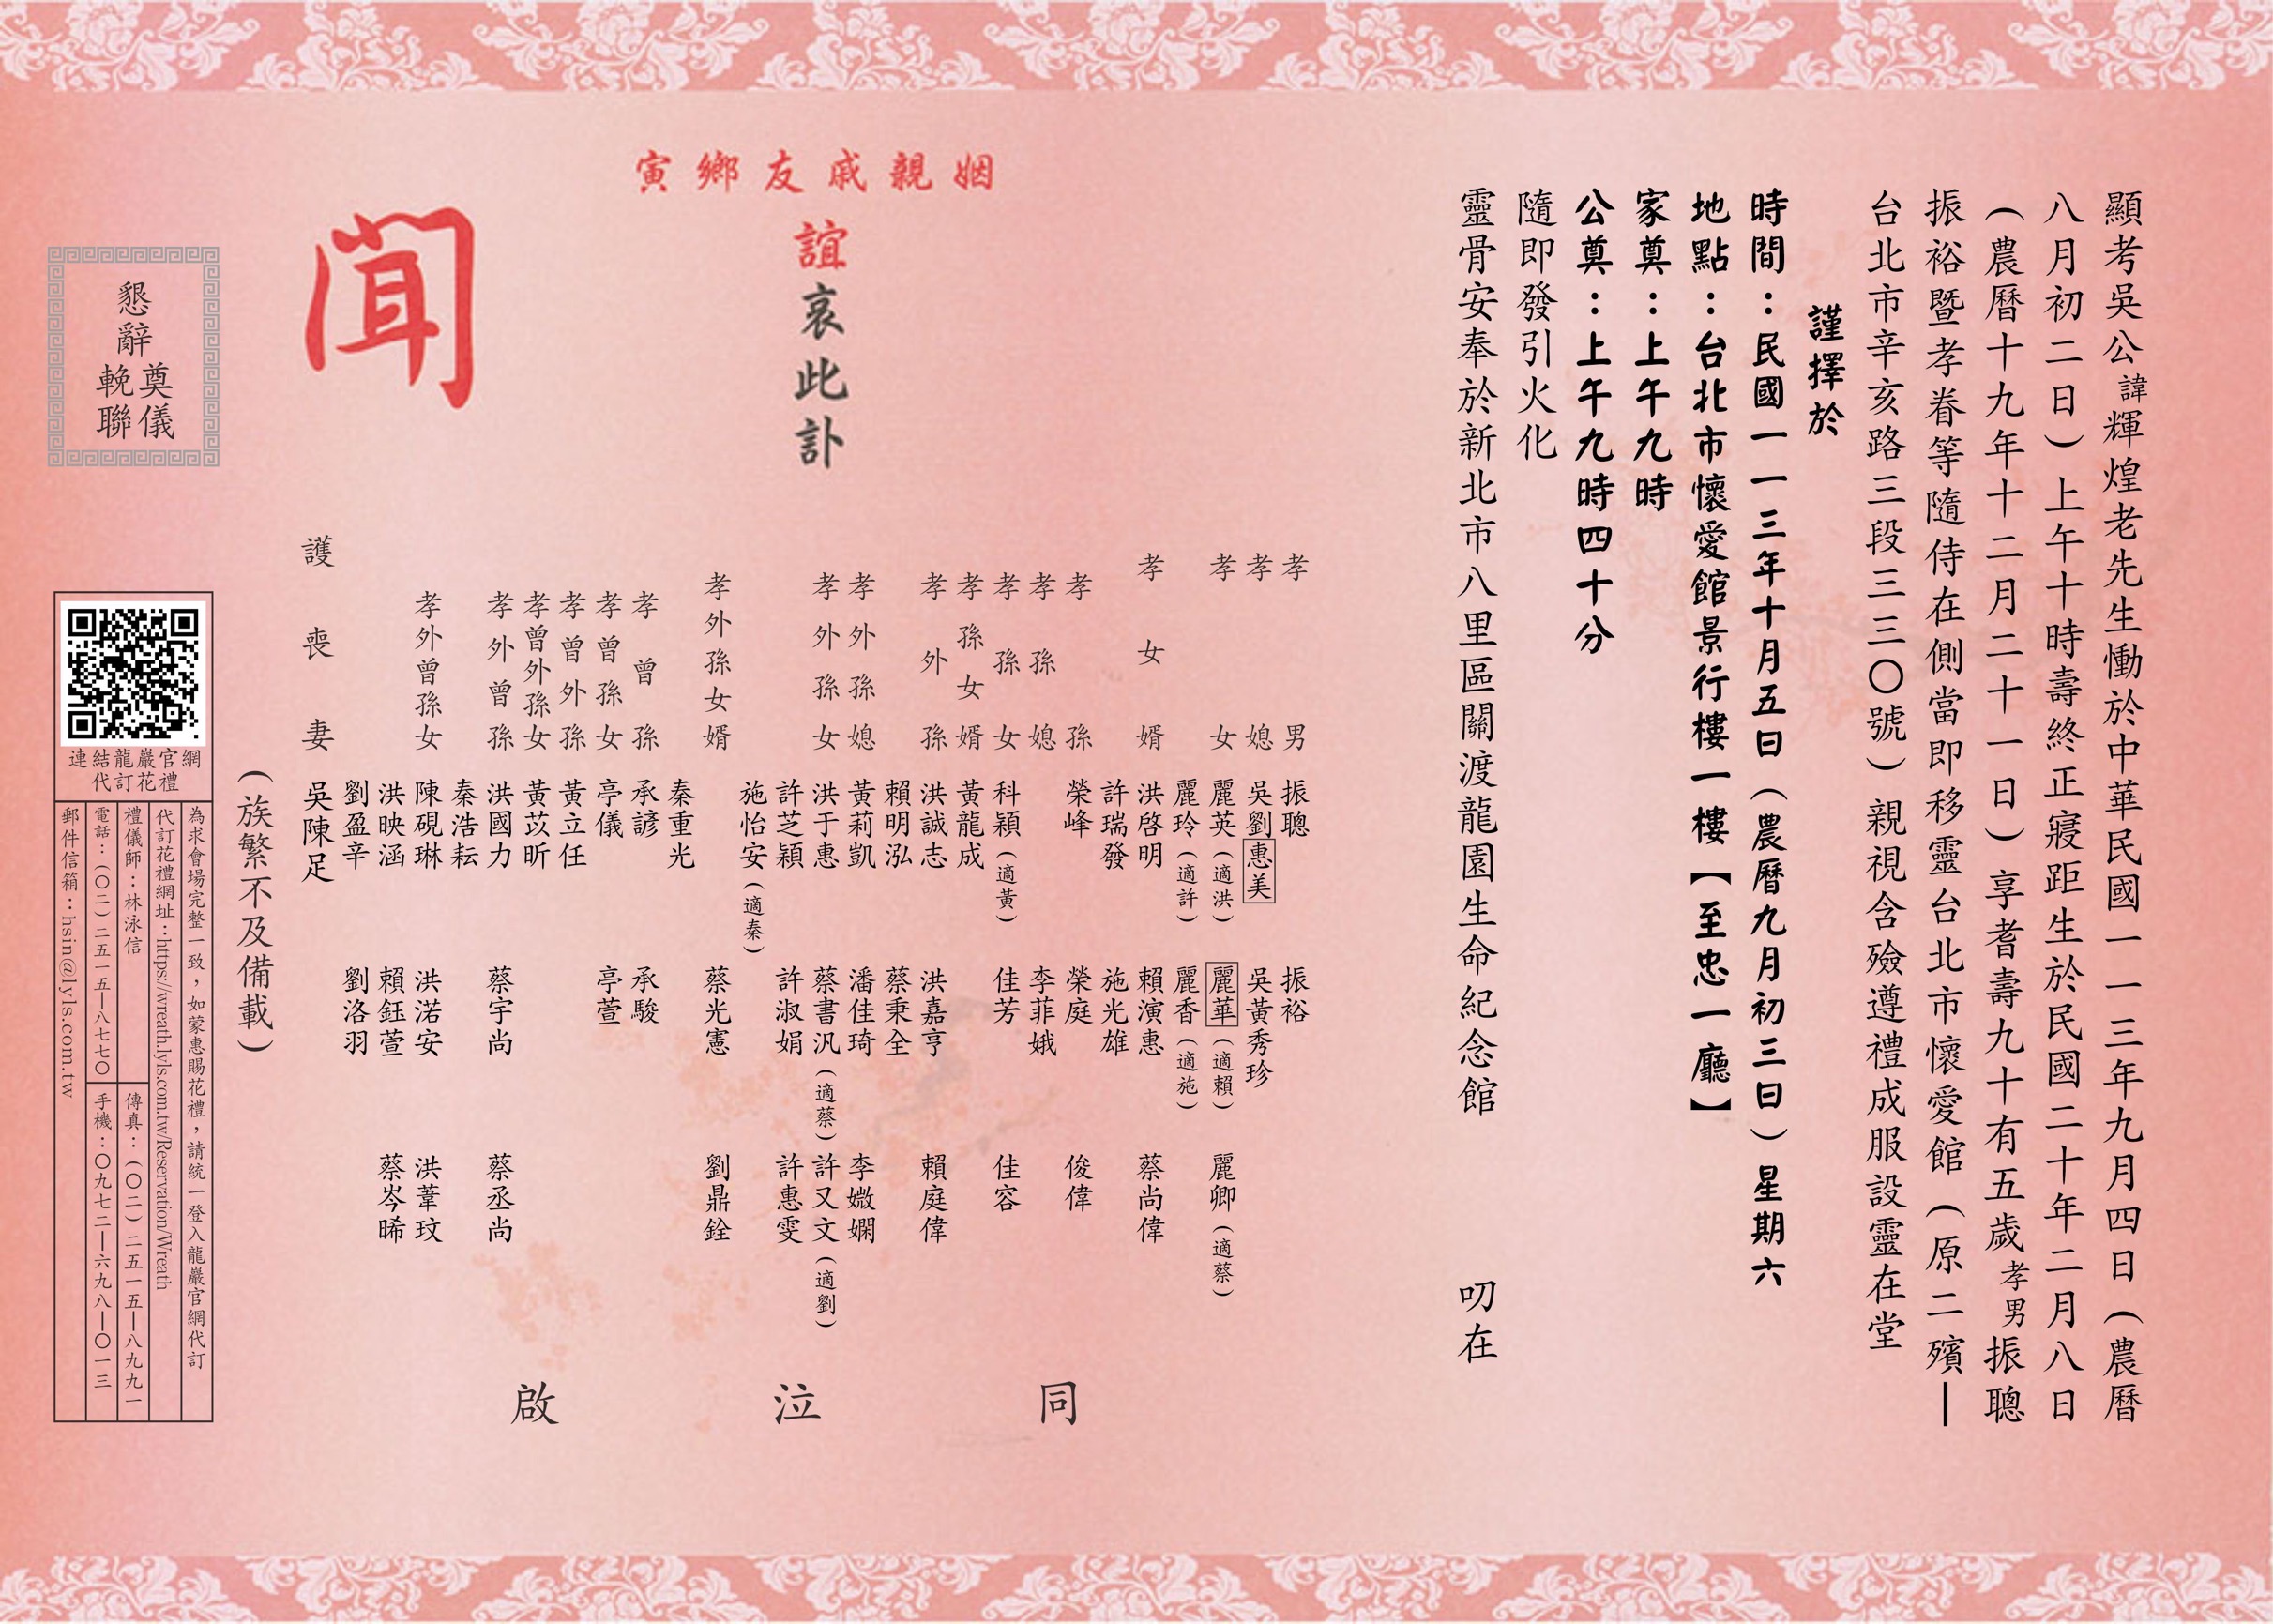 顯考吳公諱輝煌老先生慟於中華民國一一三年九月四日(農曆
八月初二日)上午十時壽終正寢距生於民國二十年二月八日
(農曆十九年十二月二十一日)享耆壽九十有五歲孝男振聰
振裕暨孝眷等隨侍在側當即移靈台北市懷愛館(原二殯—
台北市辛亥路三段三三〇號)親視含殮遵禮成服設靈在堂
謹擇於
時間:民國一一三年十月五日(農曆九月初三日)星期六
地點:台北市懷愛館景行樓一樓【至忠一廳】
家奠:上午九時
公奠:上午九時四十分
隨即發引火化
靈骨安奉於新北市八里區關渡龍園生命紀念館 叨在
姻親戚友鄉寅
誼哀此訃
聞
孝男 振聰 振裕
孝媳 吳劉惠美 吳黃秀珍
孝女 麗英(適洪) 麗華(適賴) 麗卿(適蔡)
麗玲(適許) 麗香(適施)
孝女婿 洪啓明 賴演惠 蔡尚偉
許瑞發 施光雄
孝孫 榮峰 榮庭 俊偉
孝孫媳 李菲娥
孝孫女 科穎(適黃) 佳芳 佳容
孝孫女婿 黃龍成
孝外孫 洪誠志 洪嘉亨 賴庭偉
賴明泓 蔡秉全
孝外孫媳 黃莉凱 潘佳琦 李媺嫻
孝外孫女 洪于惠 蔡書汎(適蔡) 許又文(適劉)
許芝穎 許淑娟 許惠雯
施怡安(適秦)
孝外孫女婿 蔡光憲 劉鼎銓
秦重光
孝曾孫 承諺 承駿
孝曾孫女 亭儀 亭萱
孝曾外孫 黃立任
孝曾外孫女 黃苡昕
孝外曾孫 洪國力 蔡宇尚 蔡丞尚
秦浩耘
孝外曾孫女 陳硯琳 洪渃安 洪葦玟
洪映涵 賴鈺萱 蔡岑晞
劉盈辛 劉洛羽
護喪妻 吳陳足
同泣啟
(族繁不及備載)
懇辭
奠儀
輓聯
連結龍巖官網
代訂花禮
為求會場完整一致,如蒙惠賜花禮,請統一登入龍巖官網代訂
代訂花禮網址:https://wreath.lyls.com.tw/Reservation/Wreath
禮儀師:林泳信 傳真:(〇二)二五一五—八九九一
電話:(〇二)二五一五—八七七〇 手機:〇九七二—六九八—〇一三
郵件信箱:hsin@lyls.com.tw